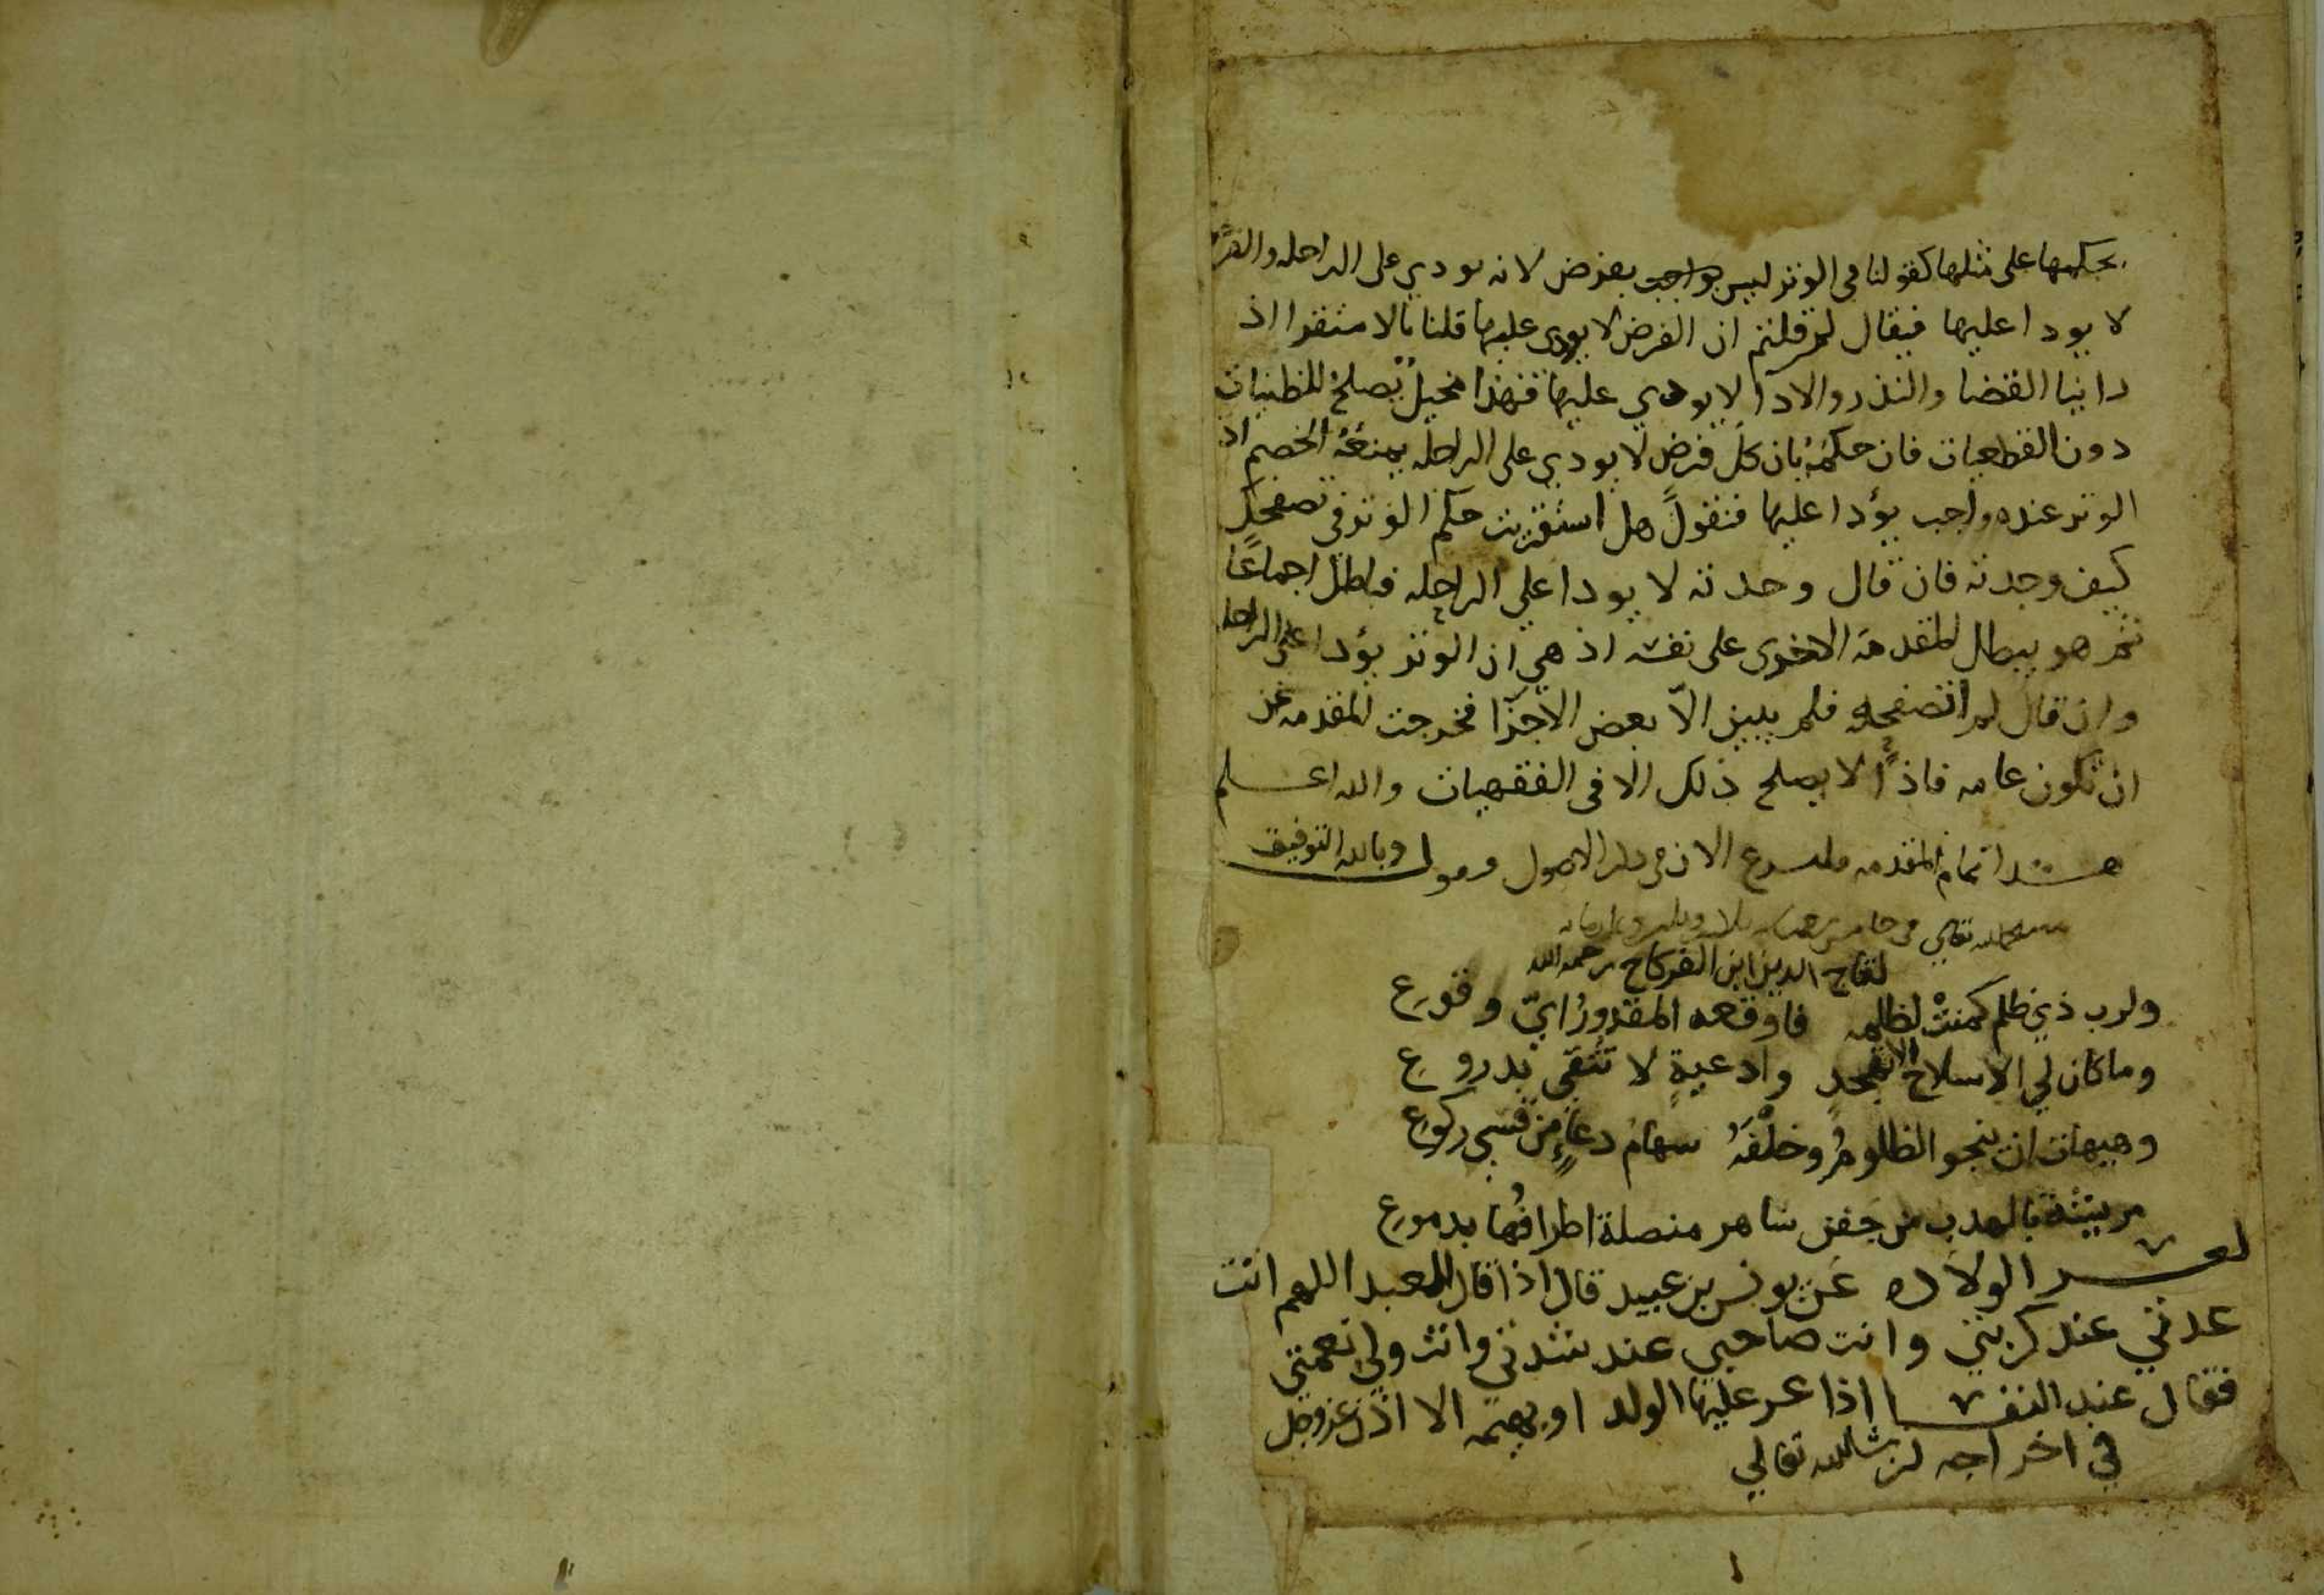 بحكمها على مثلها كقولنا فى الوتر ليس بواجب بفرض لانه يودي على الراحله والفرض
لا يودا عليها فيقال لم قلتم ان الفرض لا يودى عليها قلنا بالاستقرا اذ
راينا القضا والنذر والادآ لا يودي عليها فهذا مخيل يصلح للظنيات
دون القطعيات فان حكمه بان كل فرض لا يودي على الراحله يمنعه الخصم اذ
الوتر عنده واجب يؤدا عليها فنقول هل استقريت حكم الوتر فى تصفحك
كيف وجدته فان قال وجدته لا يودا على الراحله فباطل اجماعا
ثم هو يبطل المقدمة الاخرى على نفسه اذ هي ان الوتر يؤدا على الراحله
وان قال لم اتصفحه فلم يبين الاّ بعض الاجزآ فخرجت المقدمه عن
ان تكون عامه فاذاً لا يصلح ذلك الا فى الفقهيات والله اعلم
هذا تمام المقدمه الان الاصول وبالله التوفيق
تعالى
لتاج الدين ابن الفركاح رحمه الله
ولرب ذي ظلم كمنت لظلمه فاوقعه المقدور ايّ وقوع
وما كان لي الا سلاح تهجد وادعية لا تتقى بدروع
وهيهات ان ينجو الظلوم وخلفه سهام دعاءٍ من قسي ركوع
مريشة بالهدب من جفن ساهر منصلة اطرافها بدموع
لعسر الولاده عن يونس بن عبيد قال اذا قال العبد اللهم انت
عدتي عند كربتي وانت صاحبي عند شدتي وانت ولي نعمتي
فقال عند النفسا اذا عسر عليها الولد او بهيمه الا اذن عز وجل
في اخراجه ان شا الله تعالي